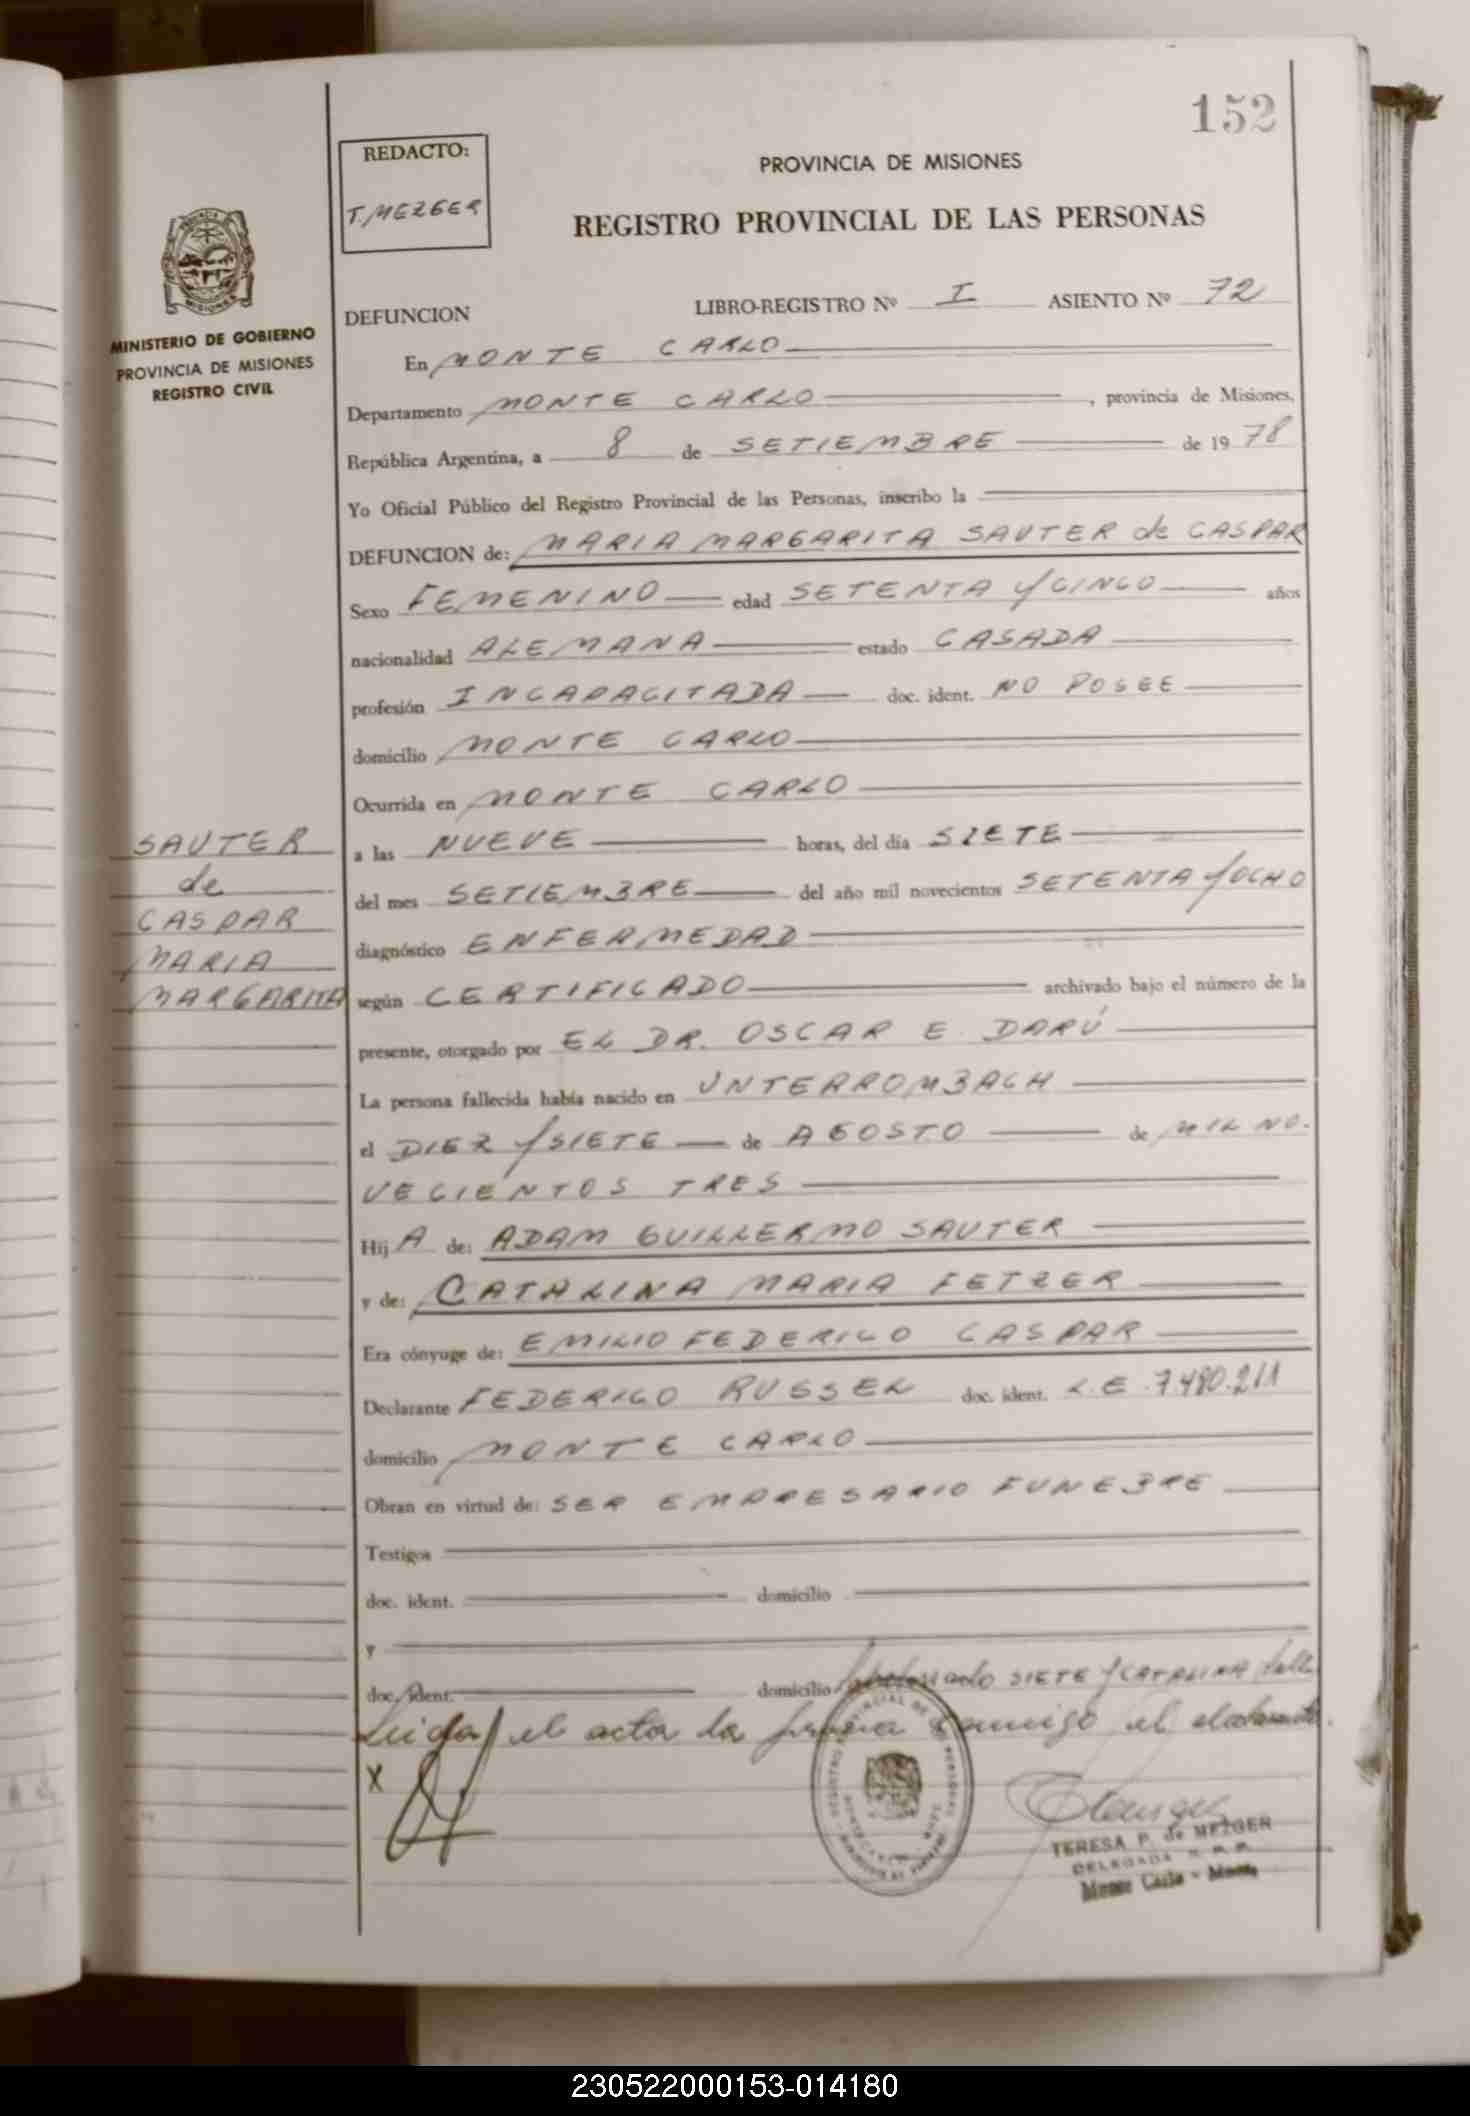 152
REDACTO:
T. MEZGER
PROVINCIA DE MISIONES
REGISTRO PROVINCIAL DE LAS PERSONAS
MISIONES
MINISTERIO DE GOBIERNO
PROVINCIA DE MISIONES
REGISTRO CIVIL
DEFUNCION LIBRO-REGISTRO Nº I ASIENTO Nº 72
En MONTE CARLO
Departamento MONTE CARLO, provincia de Misiones,
República Argentina, a 8 de SETIEMBRE de 1978
Yo Oficial Público del Registro Provincial de las Personas, inscribo la
DEFUNCION de: MARIA MARGARITA SAUTER de CASPAR
Sexo FEMENINO edad SETENTA Y CINCO años
nacionalidad ALEMANA estado CASADA
profesión INCAPACITADA doc. ident. NO POSEE
domicilio MONTE CARLO
Ocurrida en MONTE CARLO
a las NUEVE horas, del día SIETE
del mes SETIEMBRE del año mil novecientos SETENTA Y OCHO
diagnóstico ENFERMEDAD
según CERTIFICADO archivado bajo el número de la
presente, otorgado por EL DR. OSCAR E. DARÚ
La persona fallecida había nacido en UNTERROMBACH
el DIEZ Y SIETE de AGOSTO de MIL NO.
VECIENTOS TRES
Hij A de: ADAM GUILLERMO SAUTER
y de: CATALINA MARIA FETZER
Era cónyuge de: EMILIO FEDERICO CASPAR
Declarante FEDERICO RUSSEL doc. ident. L.E. 7.480.211
domicilio MONTE CARLO
Obran en virtud de: SER EMPRESARIO FUNEBRE
Testigos
doc. ident. domicilio
y
doc. ident. domicilio SIETE Y CATALINA
Leida el acta la firma conmigo el declarante.
X
TERESA P. de MEZGER
DELEGADA
Monte Carlo - Mnes.
SAUTER
de
CASPAR
MARIA
MARGARITA
230522000153-014180